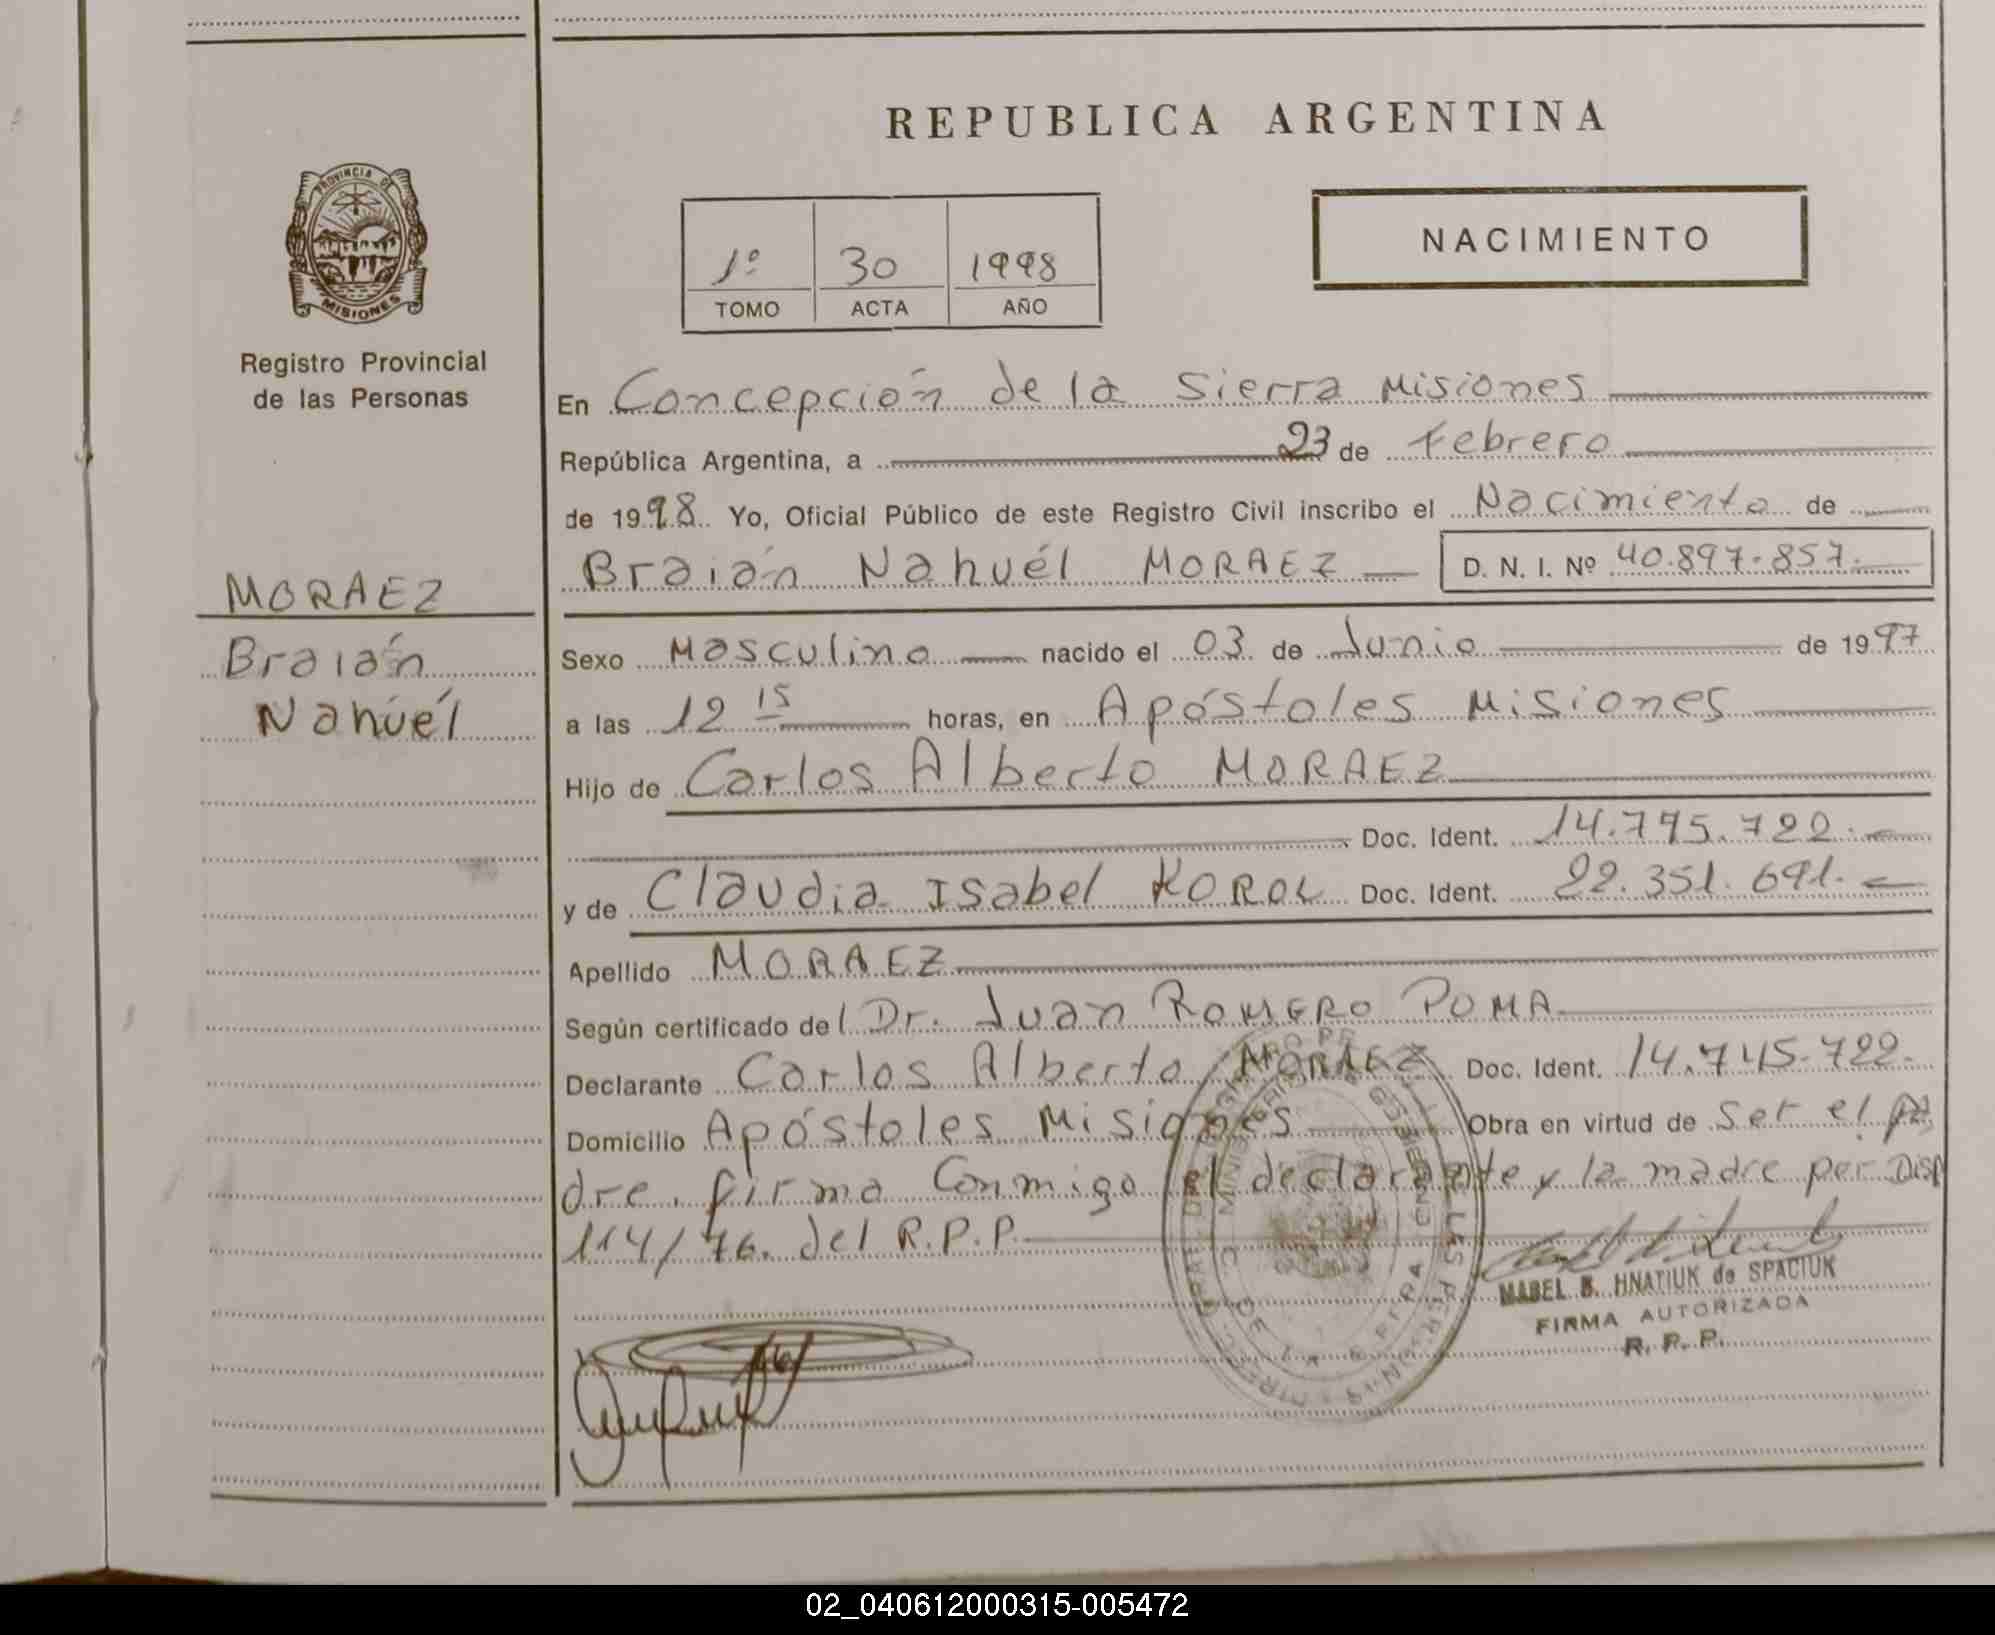 REPUBLICA ARGENTINA
PROVINCIA DE
MISIONES
Registro Provincial
de las Personas
1º 30 1998
TOMO ACTA AÑO
NACIMIENTO
MORAEZ
Braián
Nahuél
En Concepción de la Sierra Misiones
República Argentina, a 23 de Febrero
de 1998. Yo, Oficial Público de este Registro Civil inscribo el Nacimiento de
Braián Nahuél MORAEZ D. N. I. Nº 40.897.857.
Sexo Masculino nacido el 03 de Junio de 1997
a las 12 15 horas, en Apóstoles Misiones
Hijo de Carlos Alberto MORAEZ
Doc. Ident. 14.745.722.
y de Claudia Isabel KOROL Doc. Ident. 22.351.691.
Apellido MORAEZ
Según certificado del Dr. Juan ROMERO POMA
Declarante Carlos Alberto MORAEZ Doc. Ident. 14.745.722.
Domicilio Apóstoles Misiones Obra en virtud de Ser el pa
dre. firma Conmigo el declarante y la madre per Disp
114/76. del R.P.P.
MABEL B. HNATIUK de SPACIUK
FIRMA AUTORIZADA
R. P. P.
02_040612000315-005472